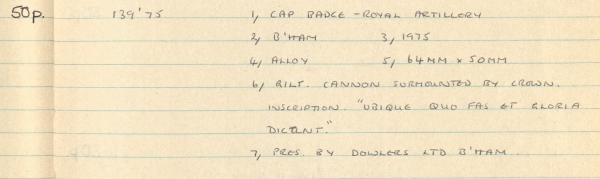 50p. 139'75 1, CAP BADGE - ROYAL ARTILLERY
2, B'HAM 3, 1975
4, ALLOY 5, 64MM x 50MM
6, GILT. CANNON SURMOUNTED BY CROWN.
INSCRIPTION. "UBIQUE QUO FAS ET GLORIA
DICUNT."
7, PRES. BY DOWLERS LTD B'HAM.